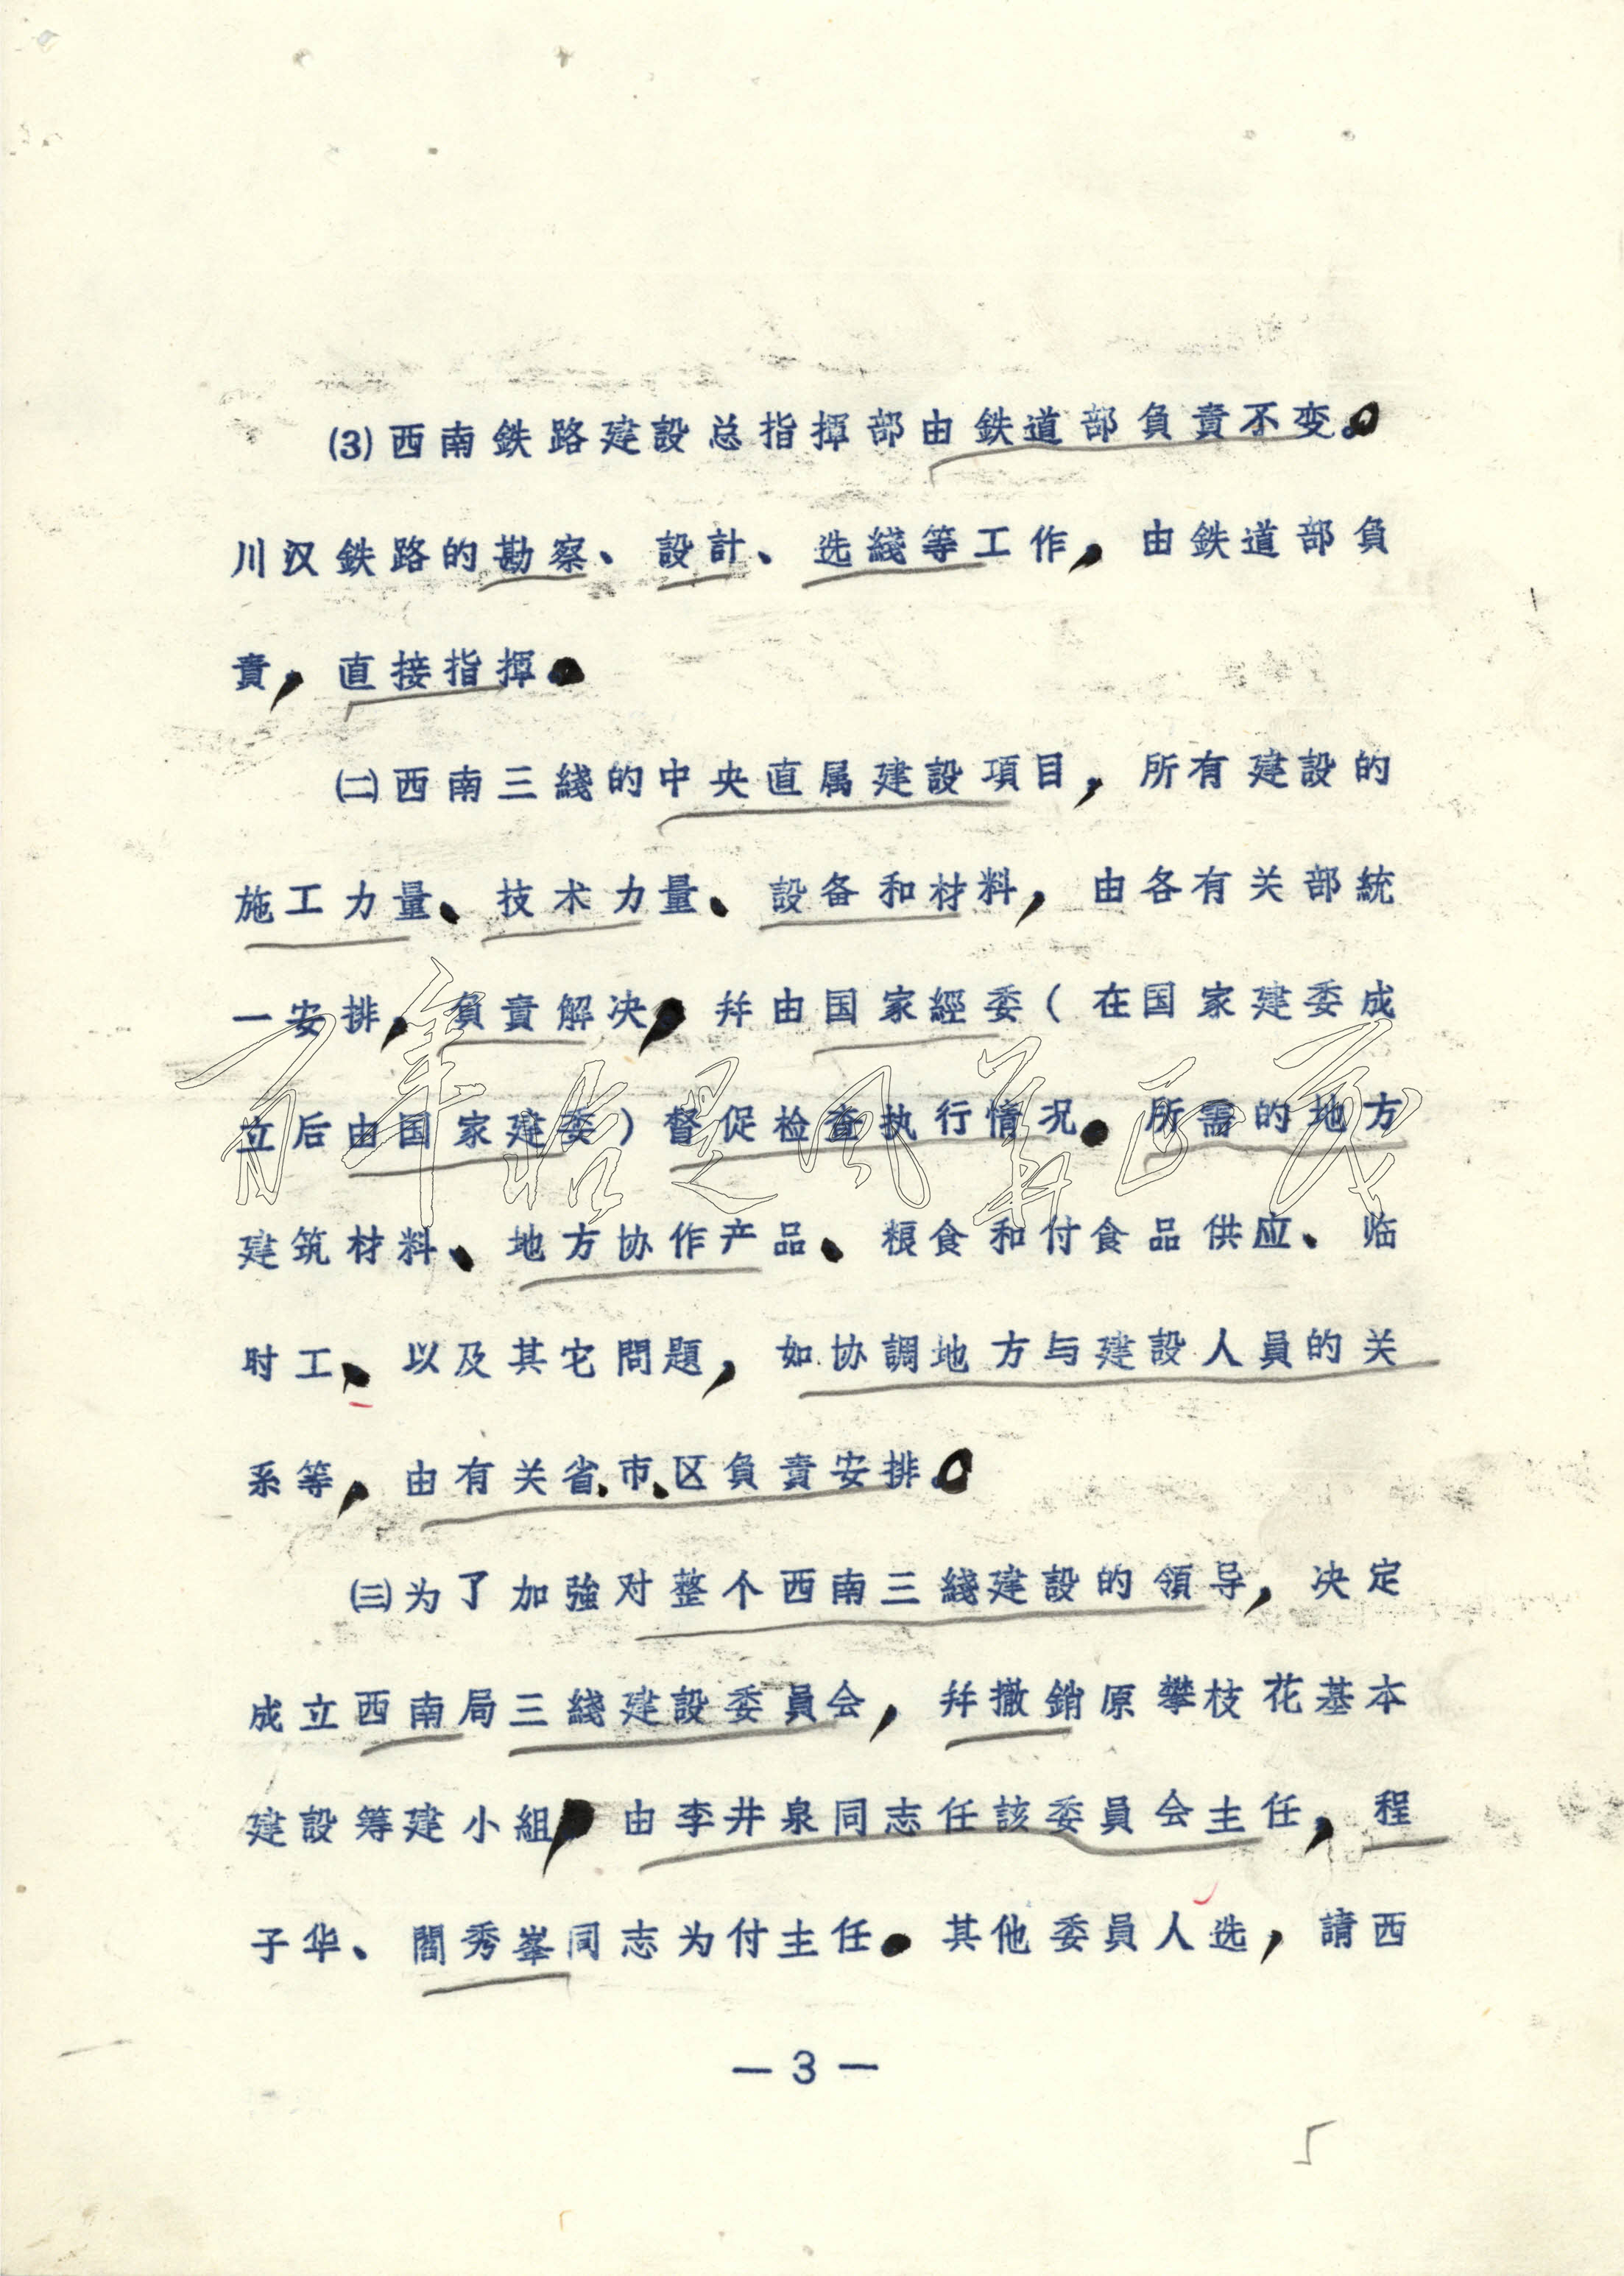 (3)西南鉄路建設总指揮部由鉄道部負責不变。
川汉鉄路的勘察、設計、选綫等工作，由鉄道部負
責，直接指揮。
㈡西南三綫的中央直属建設項目，所有建設的
施工力量、技术力量、設备和材料，由各有关部統
一安排，負責解决，幷由国家經委(在国家建委成
立后由国家建委)督促检查执行情况。所需的地方
建筑材料、地方协作产品、粮食和付食品供应、临
时工、以及其它問題，如协調地方与建設人員的关
系等，由有关省、市、区負責安排。
㈢为了加強对整个西南三綫建設的領导，决定
成立西南局三綫建設委員会，幷撤銷原攀枝花基本
建設筹建小組，由李井泉同志任該委員会主任，程
子华、閻秀峯同志为付主任。其他委員人选，請西
—3—
5